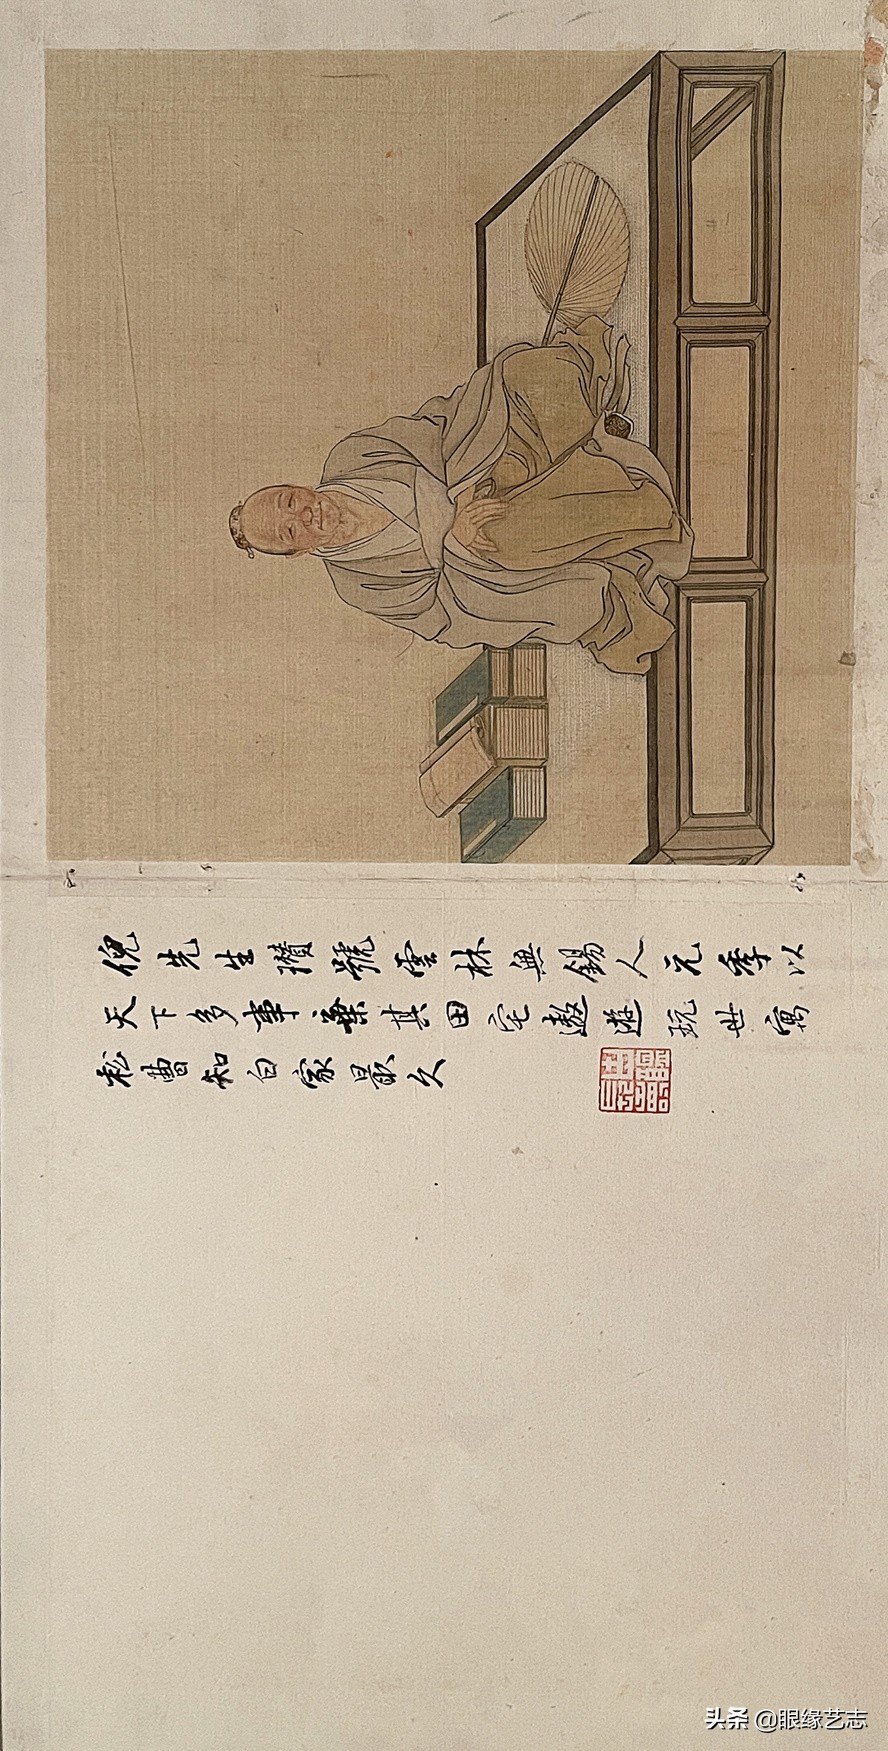 倪先生瓚號雲林無錫人元季以
天下多事棄其田宅遨遊玩世寓
松曹知白家最久
头条 @眼缘艺志